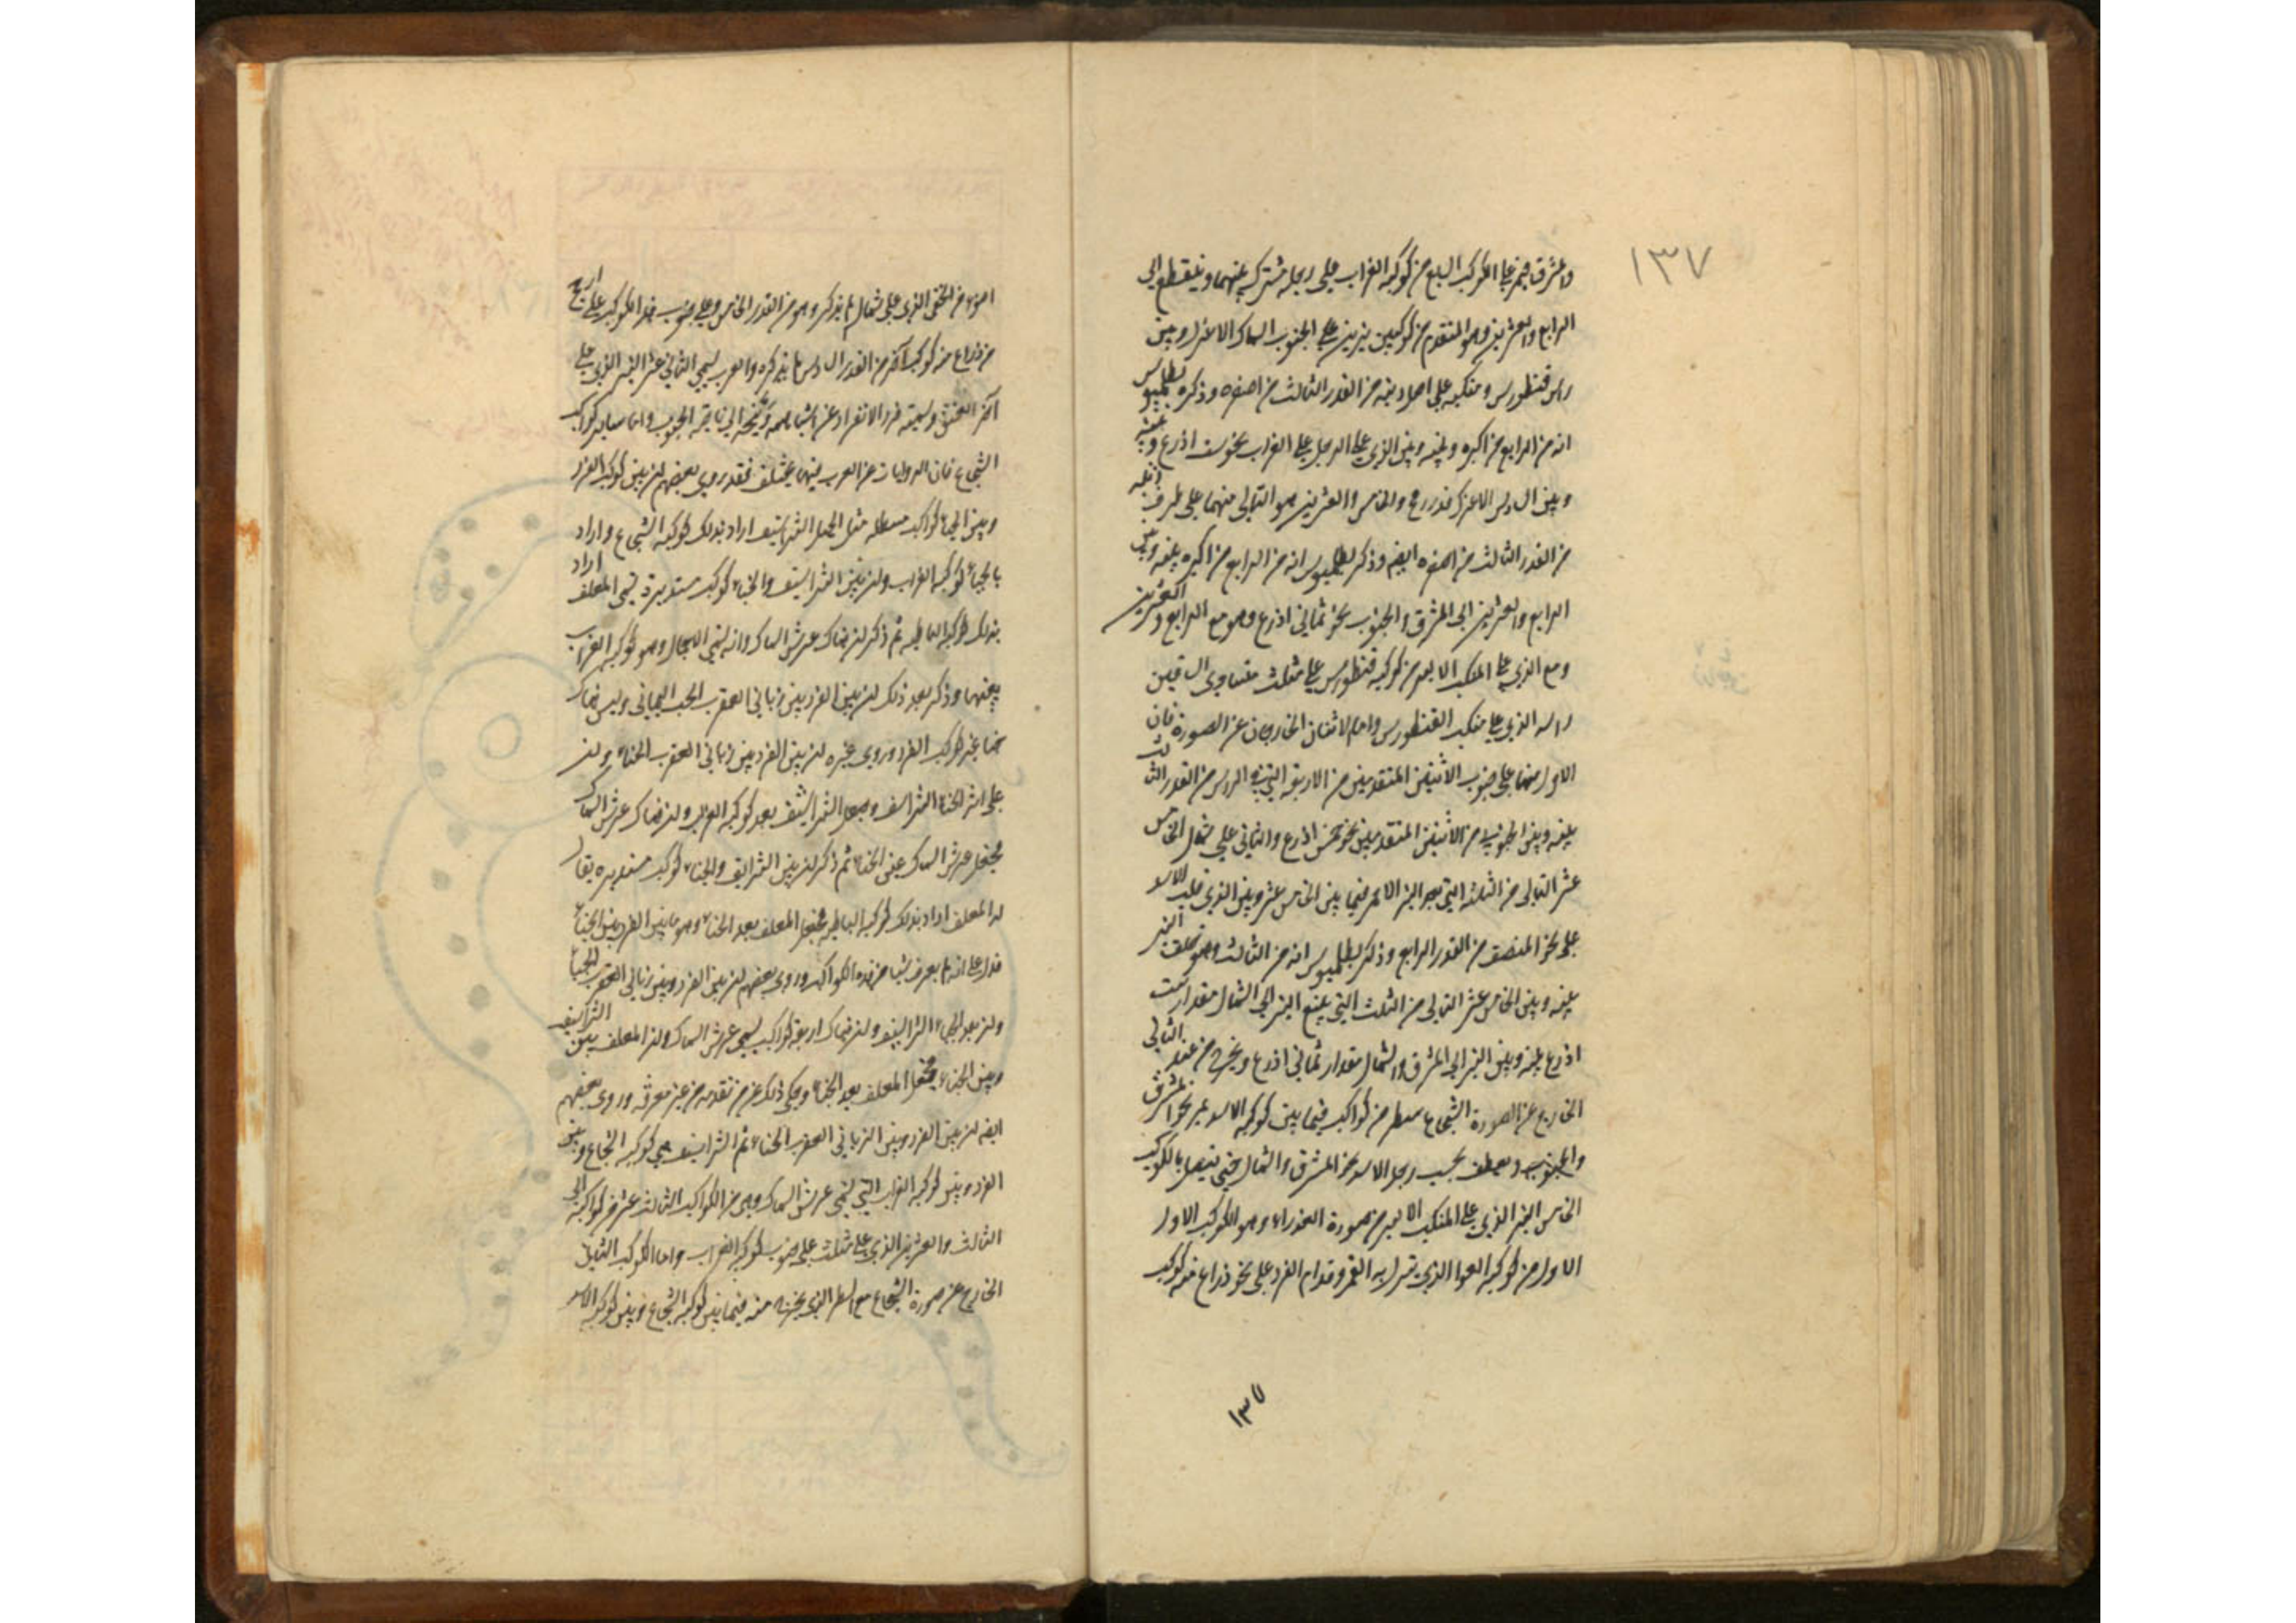 ١٣٧
والمشرق فيمر على الكوكب السابع من كوكبة الغراب على رجله مشترك بينهما وينقطع الى
الرابع والعشرين وهو المتقدم من كوكبين نيرين على الجنوب السماك الاعزل وبين
راس قنطورس ومنكبيه على احدا ذنبه من القدر الثالث من اصغره وذكر بطلميوس
انه من الرابع من اكبره وبينه وبين الذي على الرجل على الغراب نحو ست اذرع وبينه
وبين السماك الاعزل قدر رمح والخامس والعشرين هو التالي منهما على طرف ذنبه
من القدر الثالث من اصغره ايضا وذكر بطلميوس انه من الرابع من اكبره بينه وبين
الرابع والعشرين الى المشرق والجنوب نحو ثماني اذرع وهو مع الرابع والعشرين
ومع الذي على المنكب الايمن من كوكبة قنطورس على مثلث متساوي الساقين
راسه الذي على منكب القنطورس واما الاثنان الخارجان عن الصورة فان
الاول منهما على جنوب الاثنين المتقدمين من الاربعة التي في الراس من القدر الثالث
بينه وبين الجنوبي من الاثنين المتقدمين نحو خمس اذرع والثاني على شمال الخامس
عشر التالي من الثلثة التي بعد النير الاحمر فيما بين الخامس عشر وبين الذي قلب الاسد
على نحو المنتصف من القدر الرابع وذكر بطلميوس انه من الثالث وهو خلف النير
بينه وبين الخامس عشر التالي من الثلث التي يتبع النير الى الشمال مقدار ست
اذرع بينه وبين النير الى المشرق والشمال مقدار ثماني اذرع ويخرج من عند التالي
الخارج عن الصورة الشجاع سطر من كواكب فيما بين كوكبة الاسد يمر نحو المشرق
والجنوب وينعطف بحسب رجل الاسد نحو المشرق والشمال حتى يتصل بالكوكب
الخامس النير الذي على المنكب الايمن من صورة العذراء وهو الكوكب الاول
الاول من كوكبة العوا الذي ينزل به القمر وقدام الفرد على نحو ذراع منه كوكب
١٣٧
من الذي على شمال لم يذكر وهو من القدر الخامس وعلى جنوب هذا الكوكب على ارجح
من ذراع منه كوكب آخر من القدر السادس لم يذكره والعرب تسمي الثاني عشر النير الذي على
آخر العنق وسمته فرد الانفراد عن اشباهه وتنحيه الى ناحية الجنوب واما ساير كواكب
الشجاع فان الروايات عن العرب فيها يختلف فقد روى بعضهم ان بين كوكب الفرد
وبين الخباء كواكب مستطيلة مثل الحبل الشراسيف اراد بذلك كوكبة الشجاع واراد
بالخباء كوكبة الغراب وان بين الشراسيف والخباء كوكب مستديرة تسمى المعلف اراد
بذلك كوكبة الباطية ثم ذكر ان هناك عرش السماك وانه يسمى الاحمال وهو كوكبة الغراب
بعينها وذكر بعد ذلك ان بين الفرد وبين زباني العقرب الخباء اليماني وليس هناك
خباء غير كوكب الفرد وروى غيره ان بين الفرد وبين زباني العقرب الخباء وان
على اثر الخباء الشراسيف وجعل الشراسيف بعد كوكبة الغراب وان هناك عرش السماك
فجعل عرش السماك غير الخباء ثم ذكر ان بين الشراسيف والخباء كوكب مستديرة يقال
له المعلف اراد بذلك كوكبة الباطية فجعل المعلف بعد الخباء وهو ما بين الفرد وبين الخباء
فدل على انه لم يعرف شيئا من هذه الكواكب وروى بعضهم ان بين الفرد وبين زباني العقرب الخباء
وان بعد الخباء الشراسيف وان هناك اربعة كواكب تسمى عرش السماك وان المعلف بين الشراسيف
وبين الخباء فجعل المعلف بعد الخباء وحكى ذلك عن من تقدمه من غير معرفة وروى بعضهم
ايضا ان بين الفرد وبين الزباني العقرب الخباء ثم الشراسيف هي كوكبة الشجاع وبين
الفرد وبين كوكبة الغراب التي تسمى عرش السماك وهي من الكواكب الثالث عشر من كوكبة الى
الثالث والعشرين الذي على مثلث على جنوب كوكبة الغراب واما الكوكب الثاني
الخارج عن صورة الشجاع مع السطر الذي يخرج منه فيما بين كوكبة الشجاع وبين كوكبة الاسد